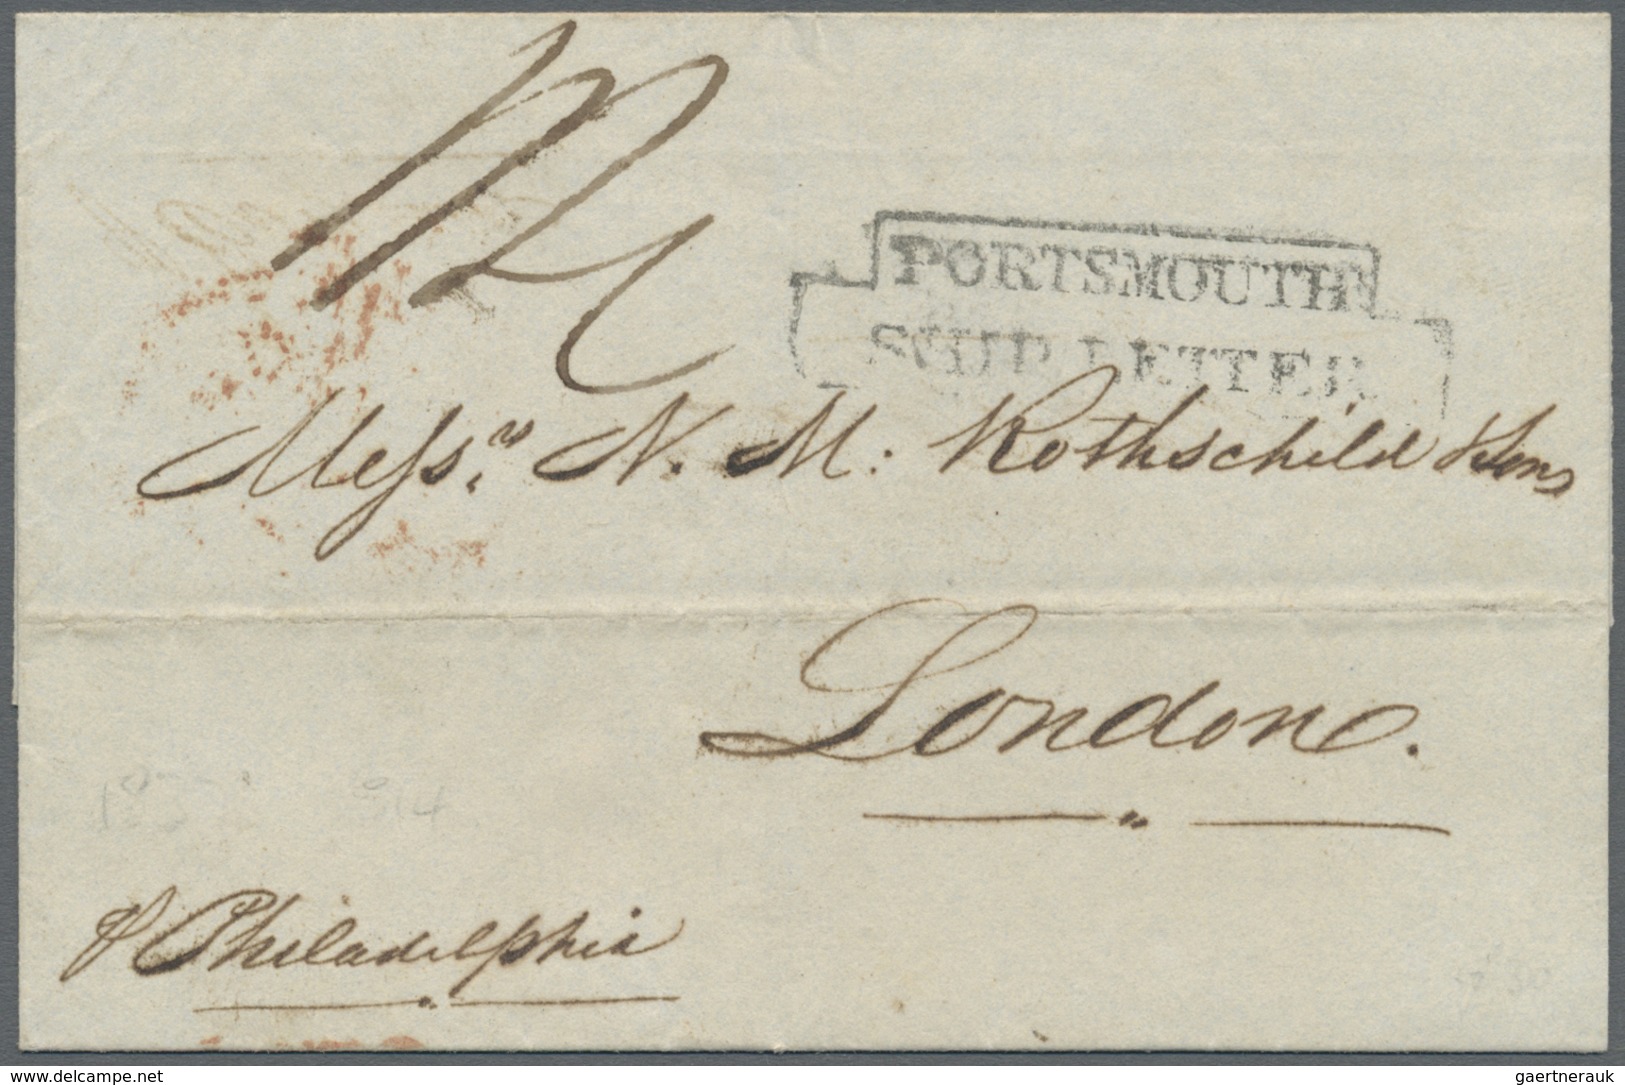 PORTSMOUTH
SHIP LETTER
Messrs. N. M: Rothschild & Sons
London.
p Philadelphia
www.delcampe.net
gaertnerauk